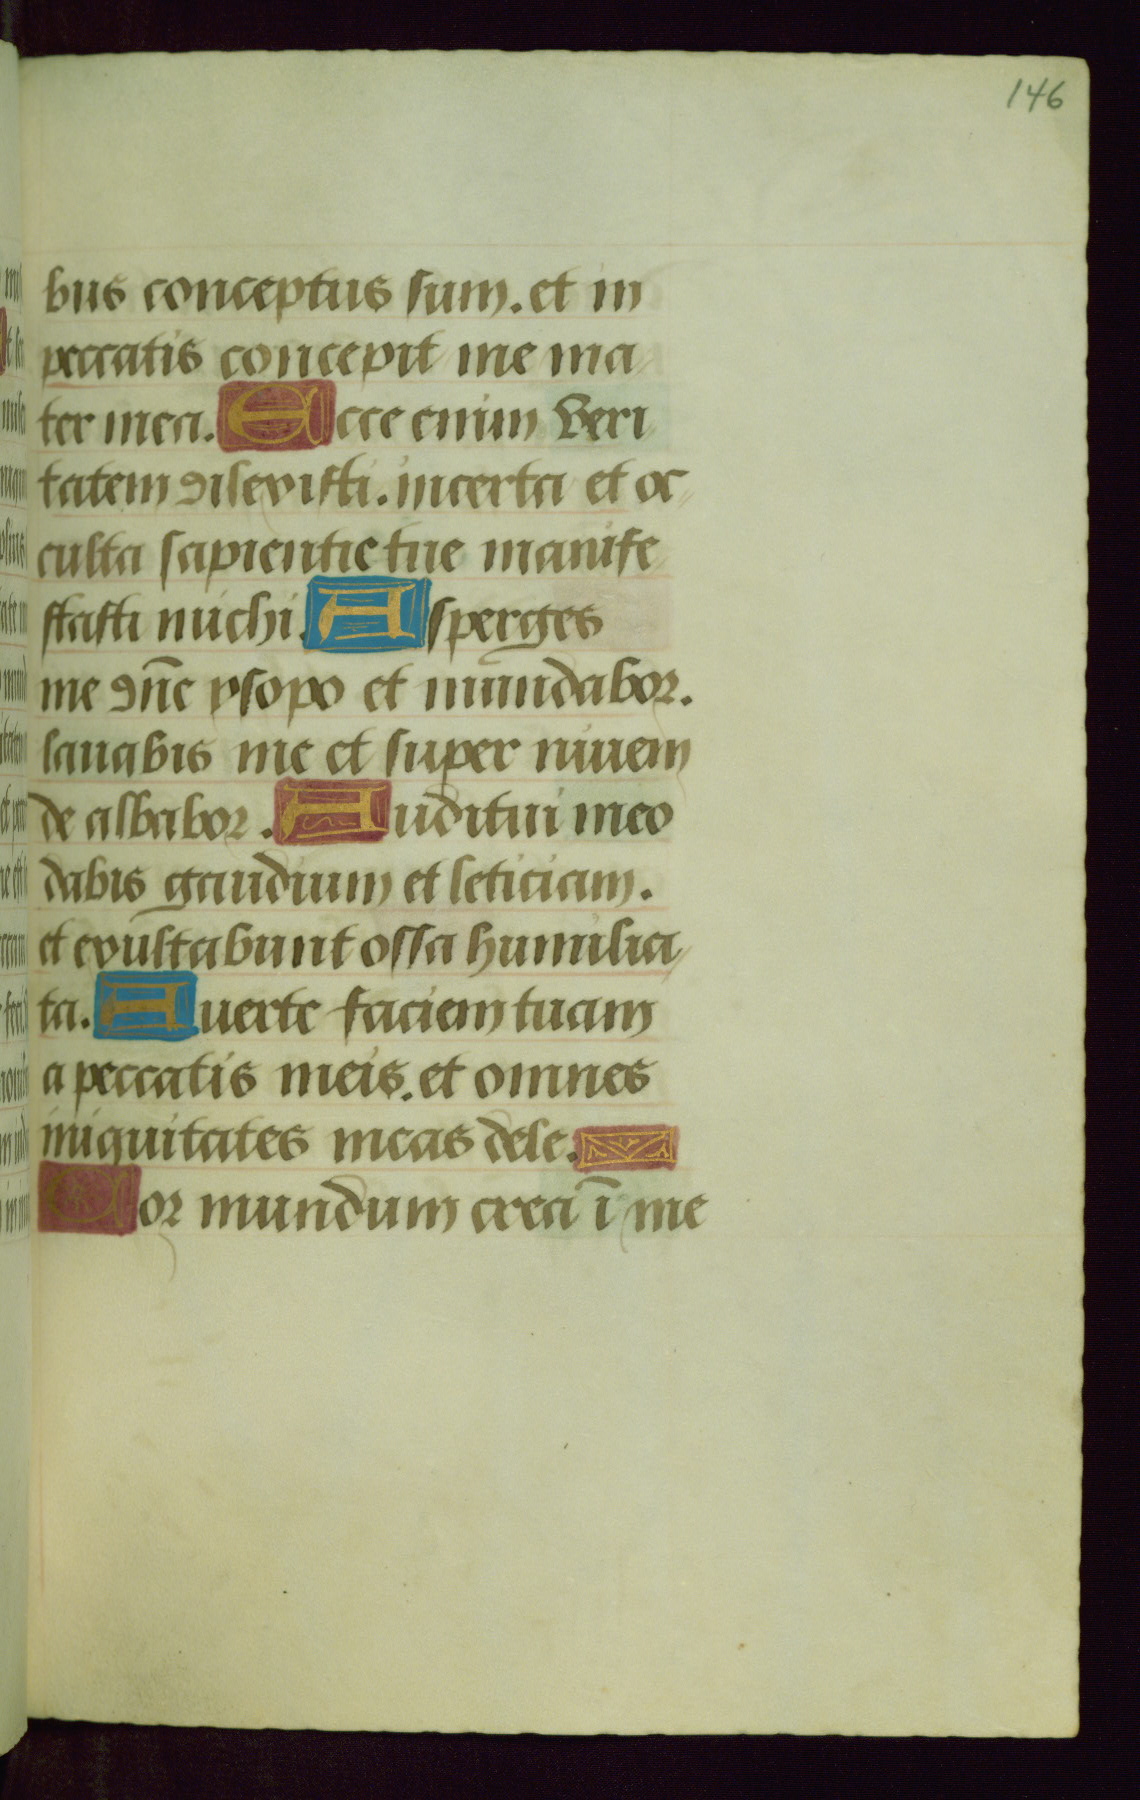 146
bus conceptus sum. et in
peccatis concepit me ma
ter mea. Ecce enim veri
tatem dilexisti. incerta et oc
culta sapientie tue manife
stasti michi. Asperges
me dn̄e ysopo et mundabor.
lauabis me et super niuem
de albabor. Auditui meo
dabis gaudium et leticiam.
et exultabunt ossa humilia
ta. Auerte faciem tuam
a peccatis meis. et omnes
iniquitates meas dele.
Cor mundum crea ī me